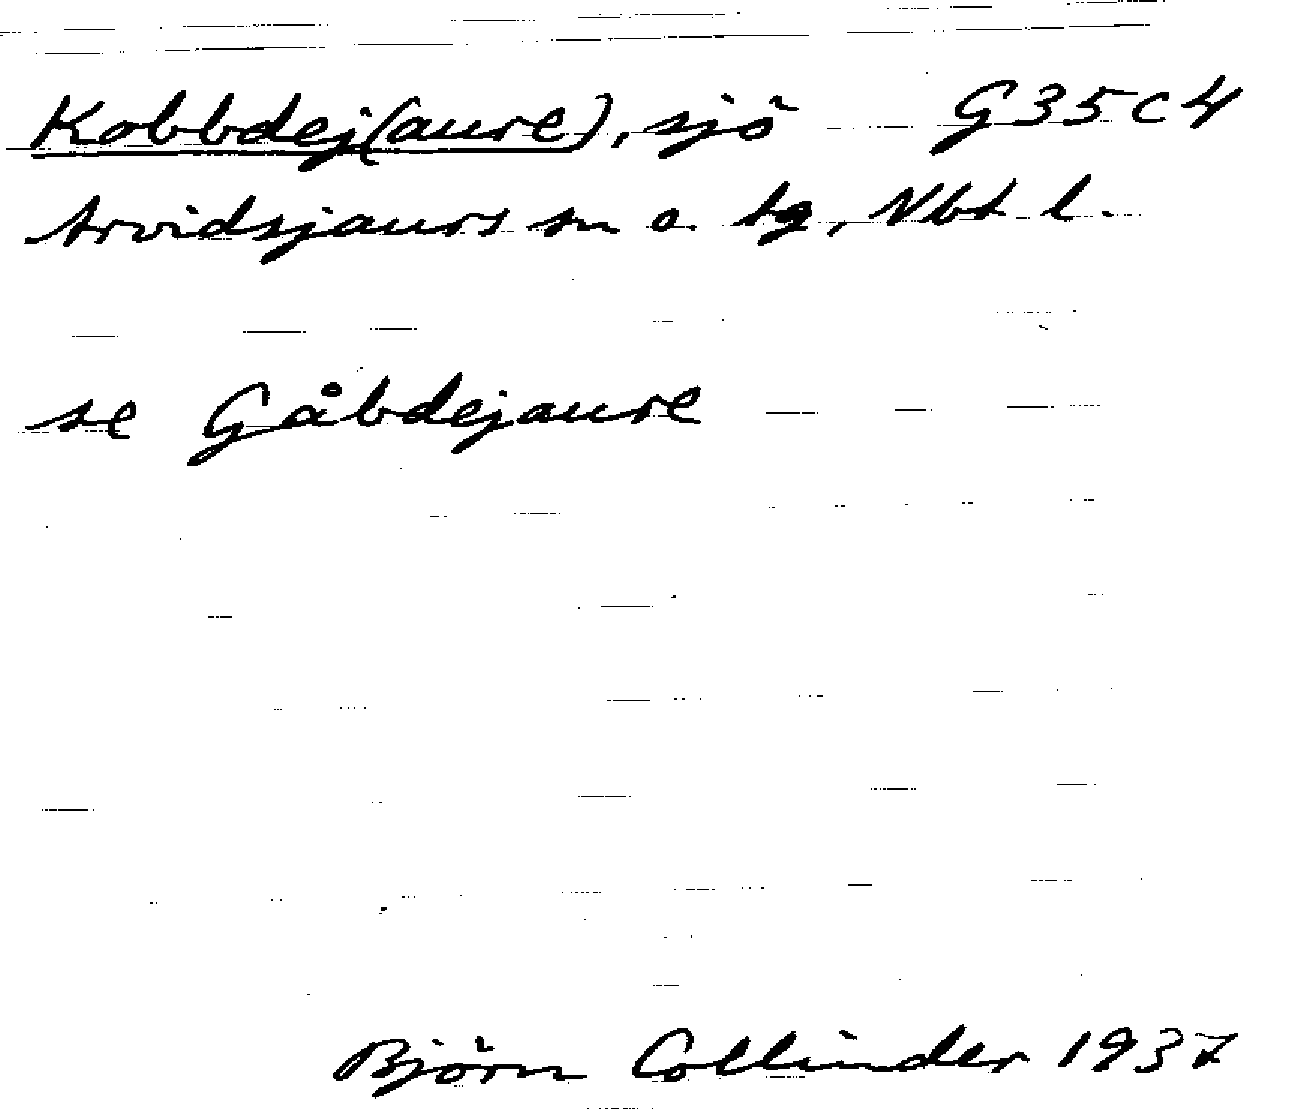 Kobbdej(aure), sjö G35c4
Arvidsjaurs sn o. tg, Nbt l.
se Gåbdejaure
Björn Collinder 1937